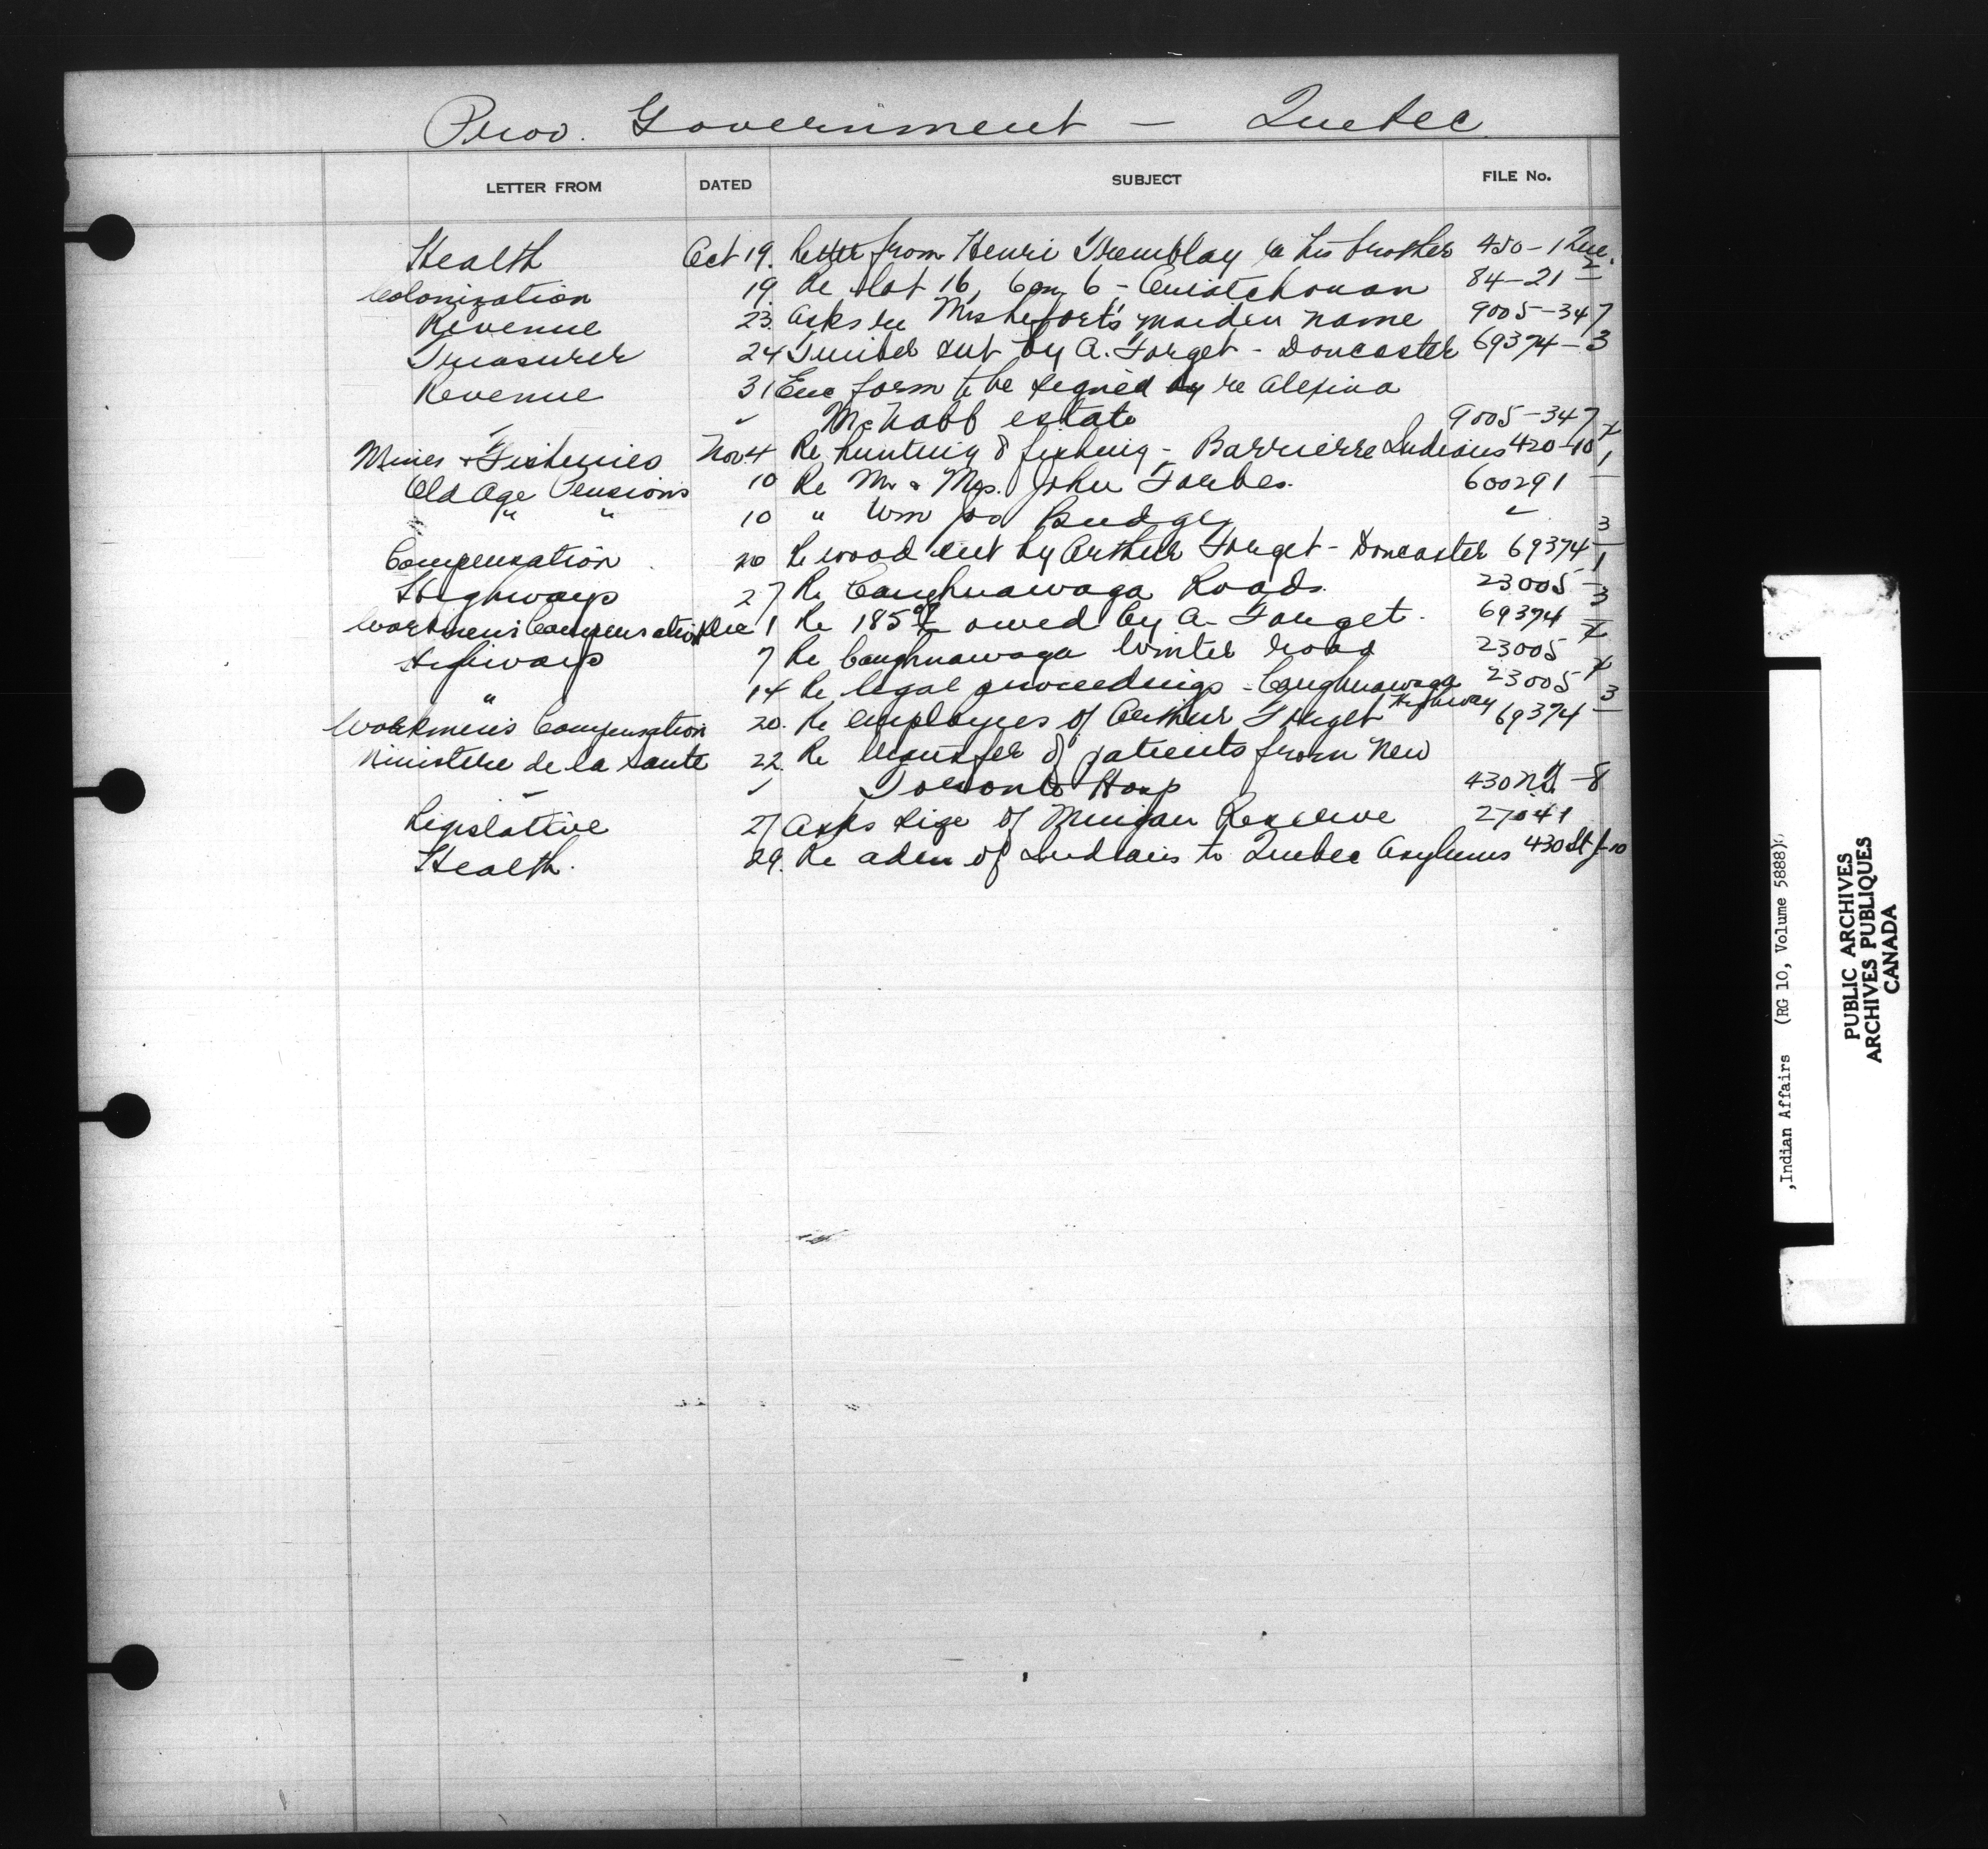 Prov. Government — Quebec
LETTER FROM DATED SUBJECT FILE No.
Health Oct 19. Letter from Henri Tremblay re his brother 450-1 Que.
Colonization 19. Re Lot 16, Con 6 - Ouiatchouan 84-21-2
Revenue 23. Asks re Mrs Lefort's maiden name 9005-347
Treasurer 24 Timber cut by A. Forget - Doncaster 69374-3
Revenue 31 Enc form to be signed by re Alexina
" ✓ McNabb estate 9005-347
Mines & Fisheries Nov 4 Re hunting & fishing - Barrierre Indians 420-10
Old Age Pensions 10 Re Mr & Mrs. John Forbes. 600291-1
" " 10 " Wm Budge ✓
Compensation 20 Re wood cut by Arthur Forget - Doncaster 69374-3
Highways 27 Re Caughnawaga Roads. 23005-1
Workmen's Compensation Dec 1 Re 185.00 owed by A. Forget. 69374-3
Highways 7 Re Caughnawaga Winter road 23005
" 14 Re legal proceedings - Caughnawaga Highway 23005
Workmen's Compensation 20. Re employees of Arthur Forget 69374-3
Ministere de la Sante 22. Re transfer of patients from New
✓ Toronto Hosp 430 -8
Legislative 27 Asks size of Mingan Reserve 27041
Health. 29. Re adm of Indians to Quebec Asylums 430 St J-10
,Indian Affairs (RG 10, Volume 5888)
PUBLIC ARCHIVES
ARCHIVES PUBLIQUES
CANADA